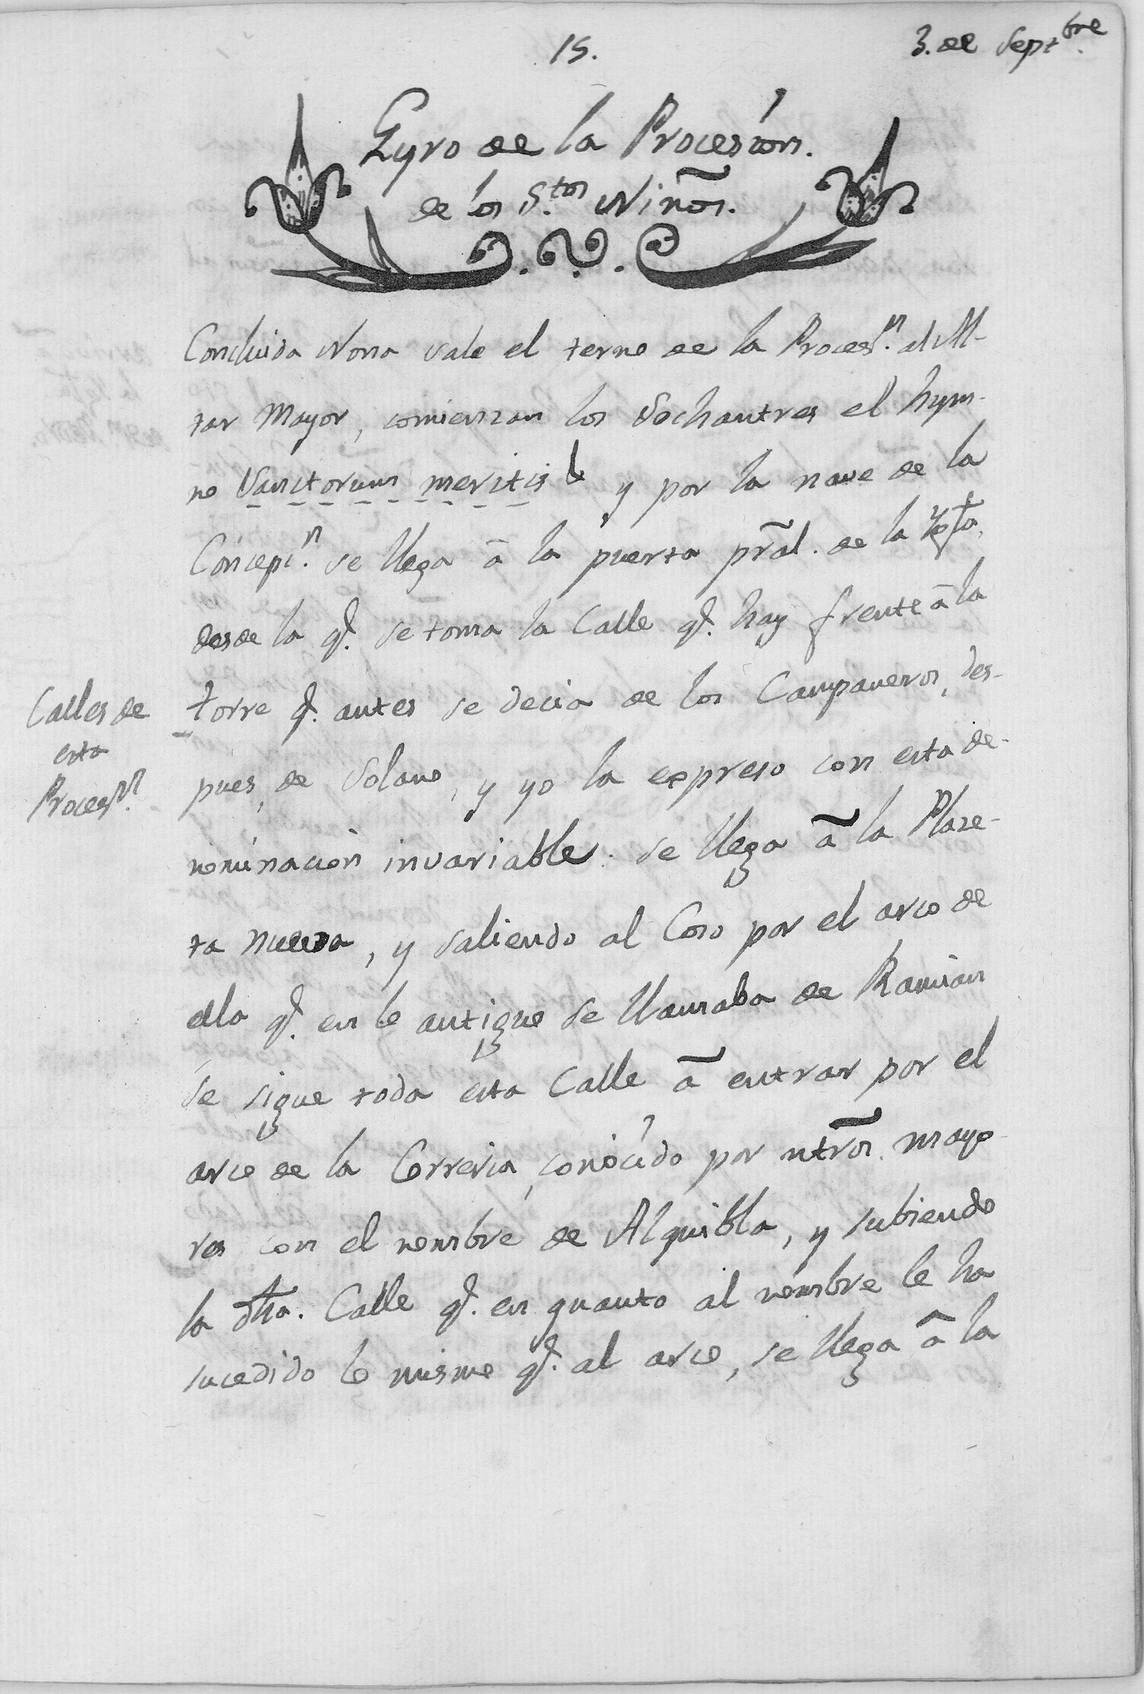 15.
3. de Septbre.
Gyro de la Procesion.
de los S.tos Niños.
Concluida Nona sale el terno de la Procesn. al Al-
tar Mayor, comienzan los Sochantres el hym-
no Sanctorum meritis y por la nave de la
Concepcn. se llega â la puerta prãl. de la Ygla.
desde la q̃. se toma la Calle q̃. hay frente â la
Calles de
esta
Procesn.
torre q̃. antes se decia de los Campaneros, des-
pues, de Solano, y yo la expreso con esta de-
nominacion invariable: se llega ã la Plaze-
ta nueva, y saliendo al Coso por el arco de
ella q̃. en lo antiguo se llamaba de Ramian
se sigue toda esta Calle ã entrar por el
arco de la Correria, conocido por ntrõs. mayo-
res con el nombre de Alquibla, y subiendo
la dha. Calle q̃. en quanto al nombre le ha
sucedido lo mismo q̃. al arco, se llega â la